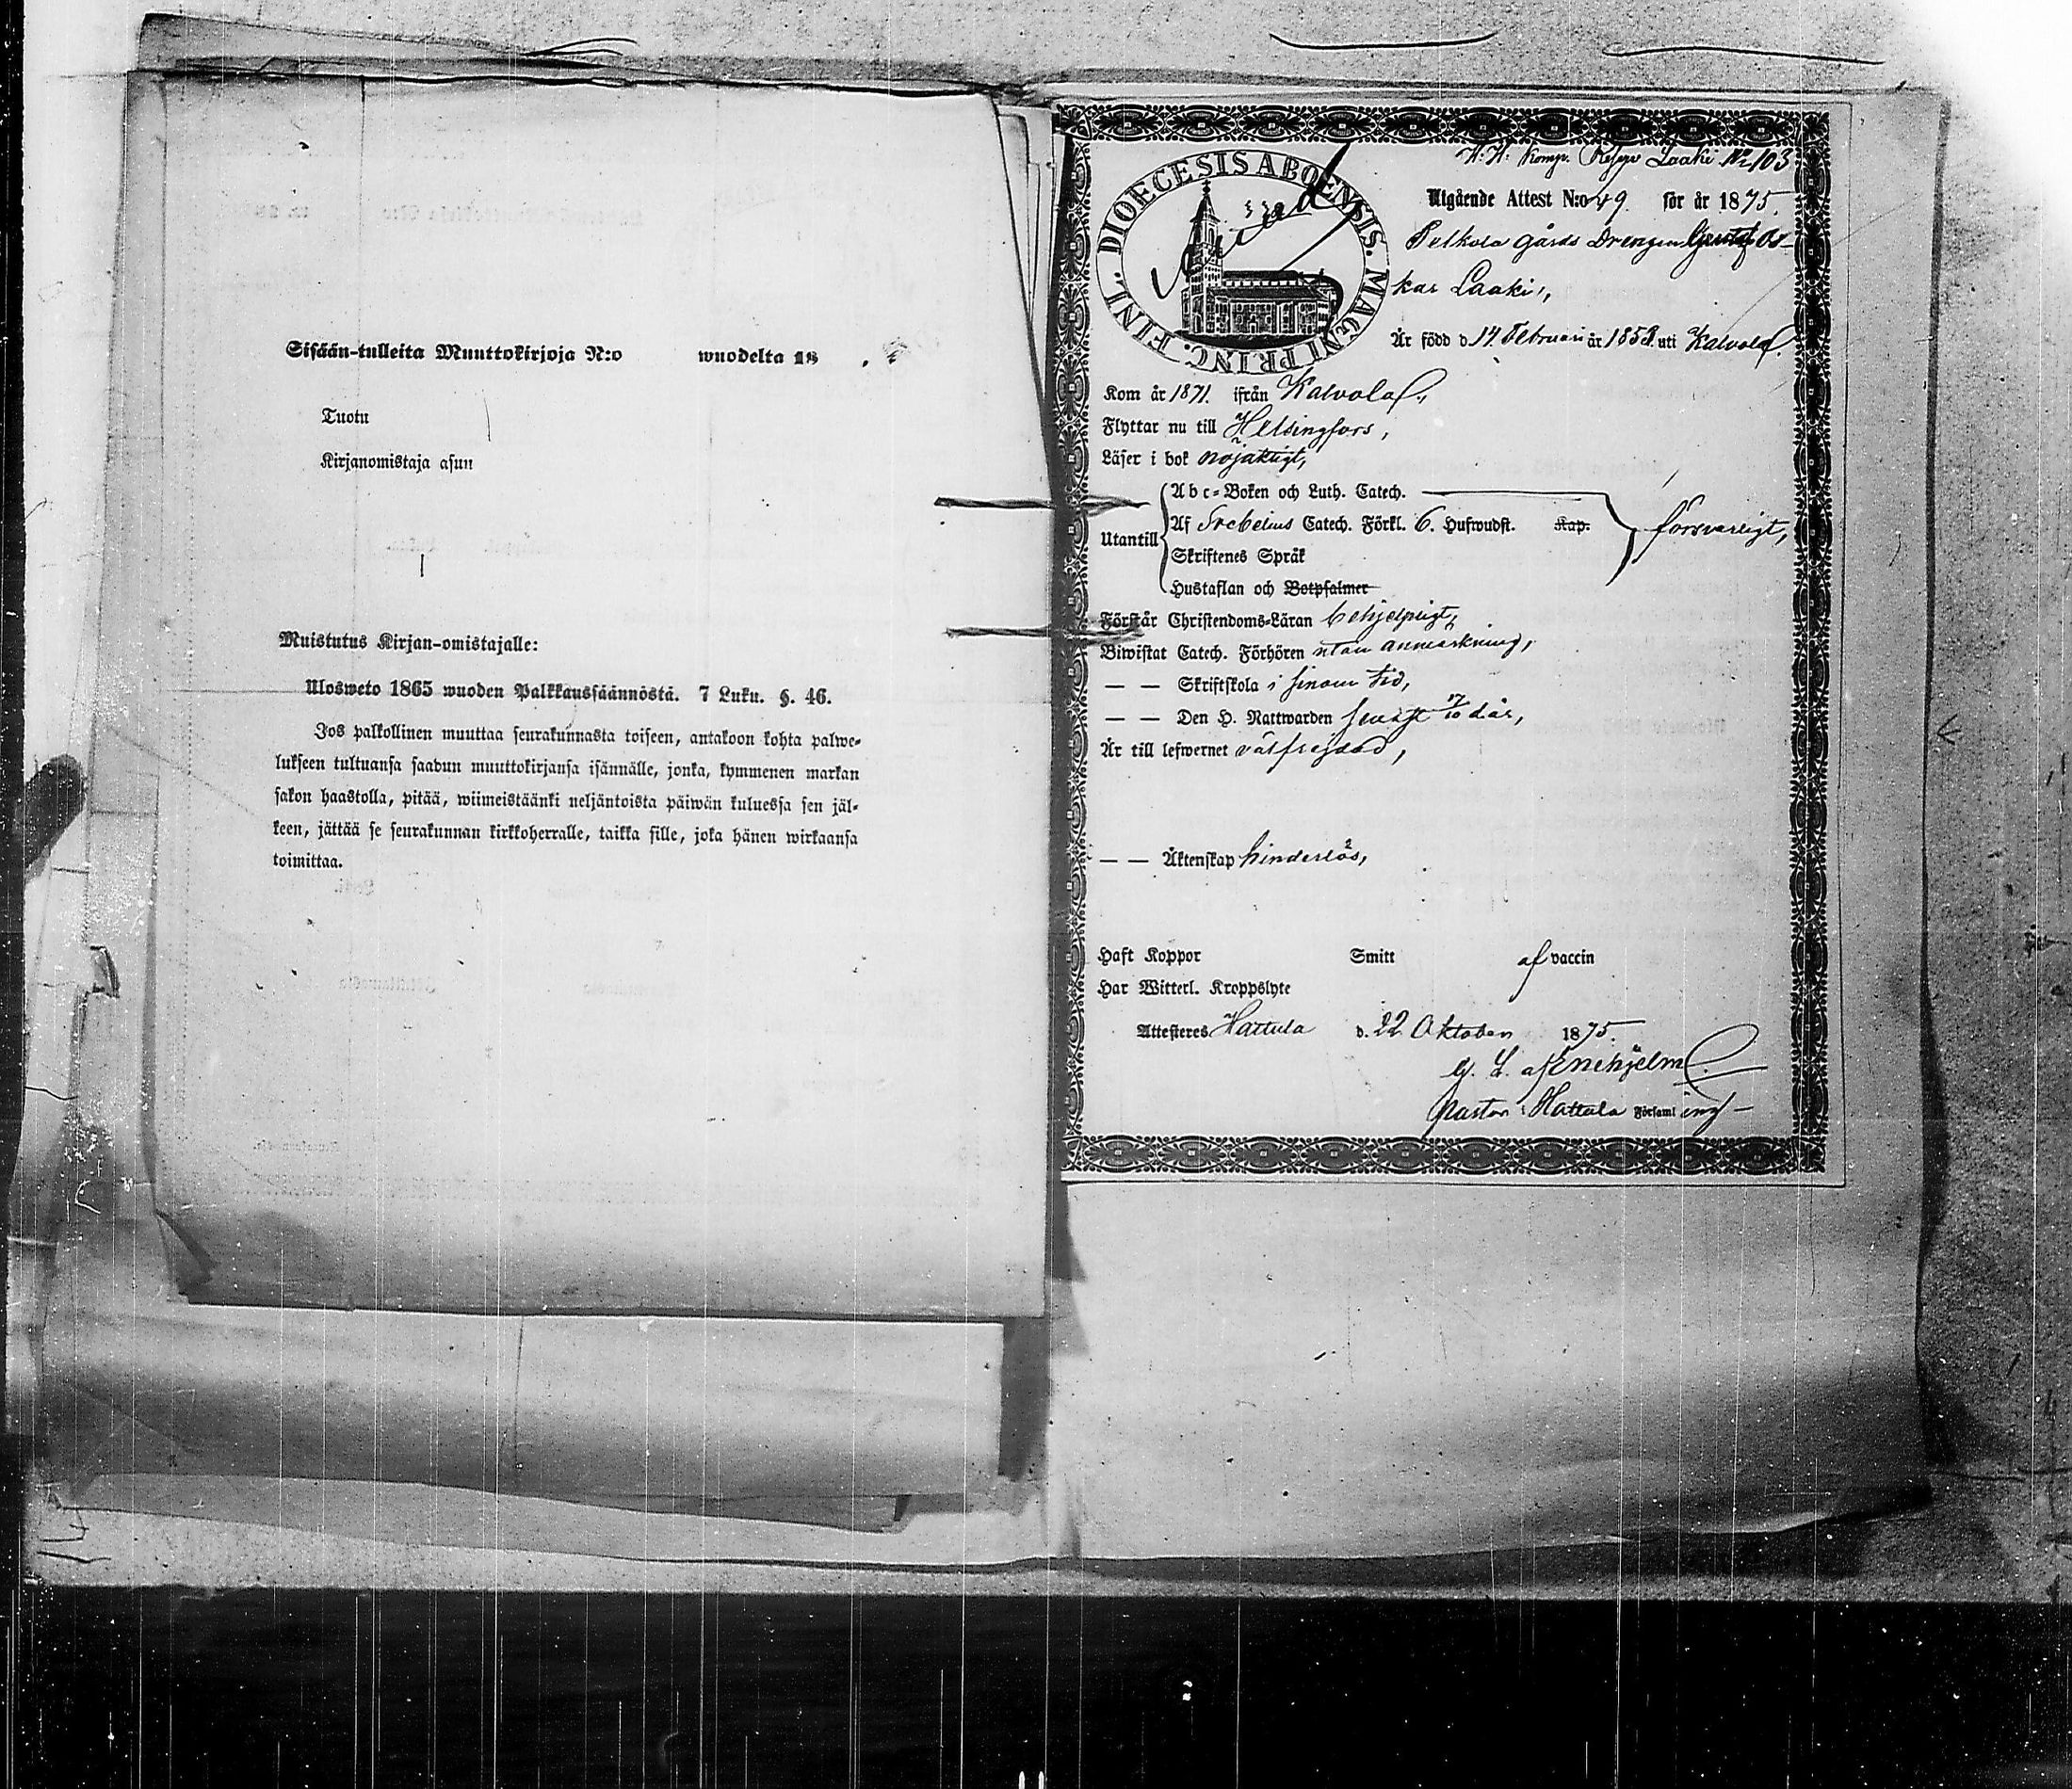 Sisään-tulleita Muuttokirjoja N:o wuodelta 18 .
Tuotu
Kirjanomistaja asun
Muistutus Kirjan-omistajalle:
Ulosweto 1865 wuoden Palkkaussäännöstä. 7 Luku. §. 46.
Jos palkollinen muuttaa seurakunnasta toiseen, antakoon kohta palwe-
lukseen tultuansa saadun muuttokirjansa isännälle, jonka, kymmenen markan
sakon haastolla, pitää, wiimeistäänki neljäntoista päiwän kuluessa sen jäl-
keen, jättää se seurakunnan kirkkoherralle, taikka sille, joka hänen wirkaansa
toimittaa.
Komp. Laaki No 103
DIOECESIS ABOENSIS. MAGNI PRINC. FINL.
Utgående Attest N:o 49. för år 1875.
Pelkola gårds Drengen Gustaf Os-
kar Laaki,
Är född d 14 Februari år 1853. uti Kalvola.
Kom år 1871. ifrån Kalvola,
Flyttar nu till Helsingfors,
Läser i bok nöjaktigt,
Utantill
Abc-Boken och Luth. Catech.
Af Svebelius Catech. Förkl. 6. Hufwudst. Kap. försvarligt,
Skriftenes Språk
Hustaflan och Botpsalmer
Förstår Christendoms-Läran behjelpligt,
Biwistat Catech. Förhören utan anmärkning,
— — Skriftskola i sinom tid,
— — Den H. Nattwarden senast 17/10 d.år,
Är till lefwernet välfrejdad,
— — Äktenskap hinderlös,
Haft Koppor Smitt af vaccin
Har Witterl. Kroppslyte
Attesteres Hattula d. 22 Oktober 1875.
G. L. af Enehjelm.
Pastor i Hattula Församling